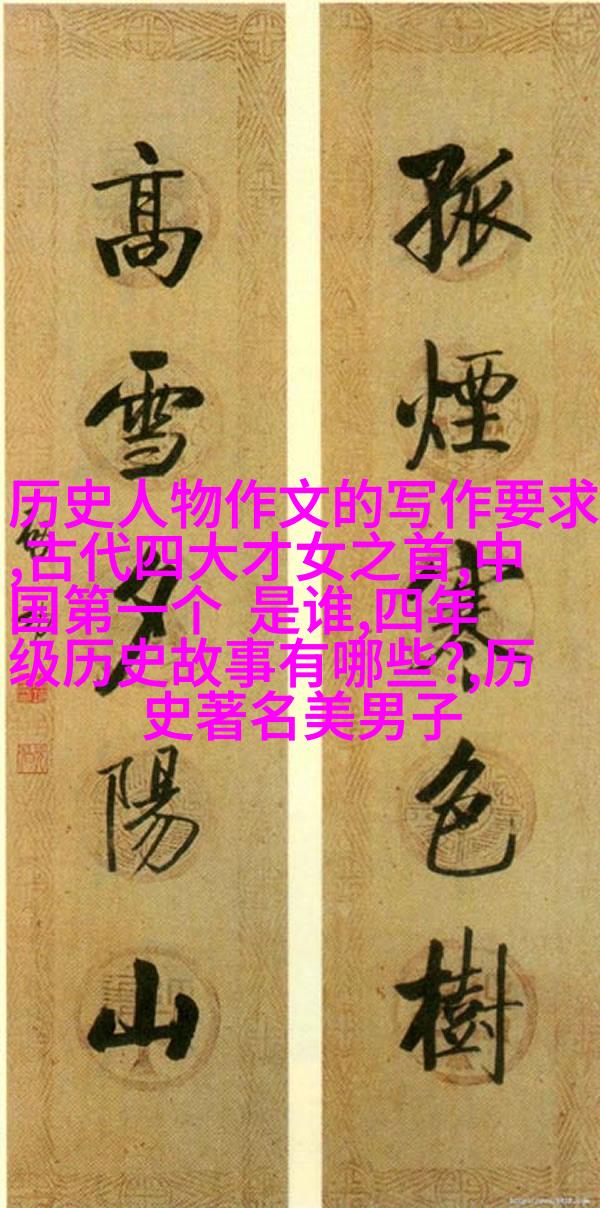 孤煙寒色樹
高雪夕陽山
历史人物作文的写作要求
,古代四大才女之首,中
国第一个 是谁,四年
级历史故事有哪些?,历
史著名美男子